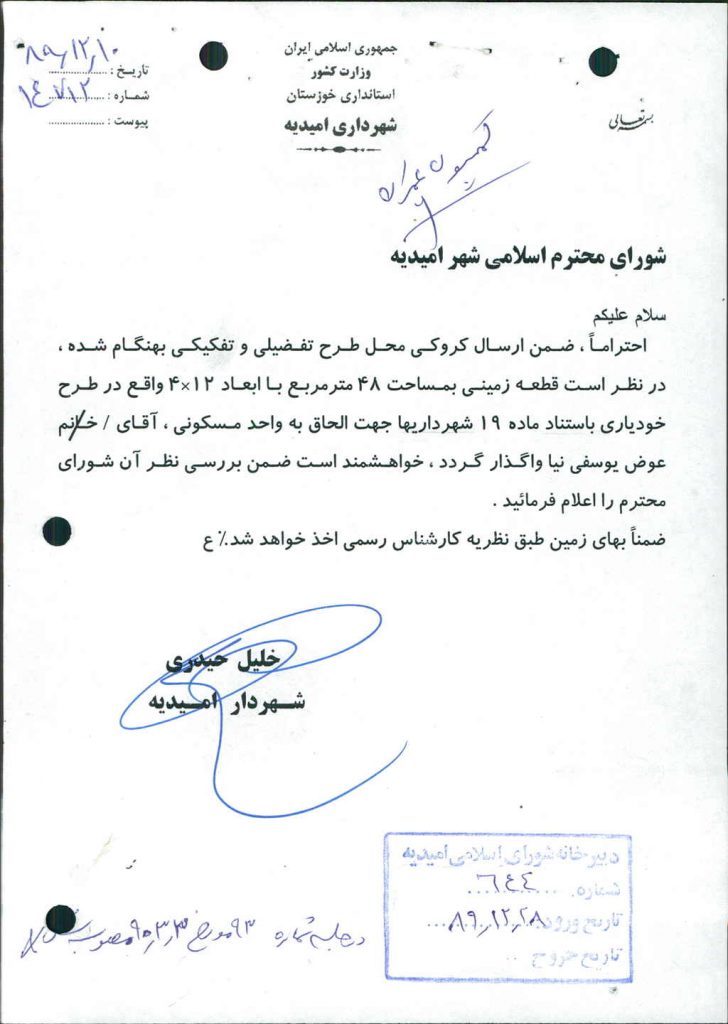 جمهوری اسلامی ایران
وزارت کشور
استانداری خوزستان
شهرداری امیدیه
بسمه تعالی
تاریخ : ۸۹/۱۲/۱۰
شماره : ۱۴۷۱۲
پیوست :
کمیسیون عمران
شورای محترم اسلامی شهر امیدیه
سلام علیکم
احتراماً ، ضمن ارسال کروکی محل طرح تفضیلی و تفکیکی بهنگام شده ،
در نظر است قطعه زمینی بمساحت ۴۸ مترمربع با ابعاد ۱۲×۴ واقع در طرح
خودیاری باستناد ماده ۱۹ شهرداریها جهت الحاق به واحد مسکونی ، آقای / خانم
عوض یوسفی نیا واگذار گردد ، خواهشمند است ضمن بررسی نظر آن شورای
محترم را اعلام فرمائید .
ضمناً بهای زمین طبق نظریه کارشناس رسمی اخذ خواهد شد.٪ ع
خلیل حیدری
شهردار امیدیه
دبیرخانه شورای اسلامی امیدیه
شماره ۶۴۴
تاریخ ورود ۸۹/۱۲/۲۸
تاریخ خروج
در جلسه شماره ۹۳ مورخ ۹۰/۳/۳ مصوب